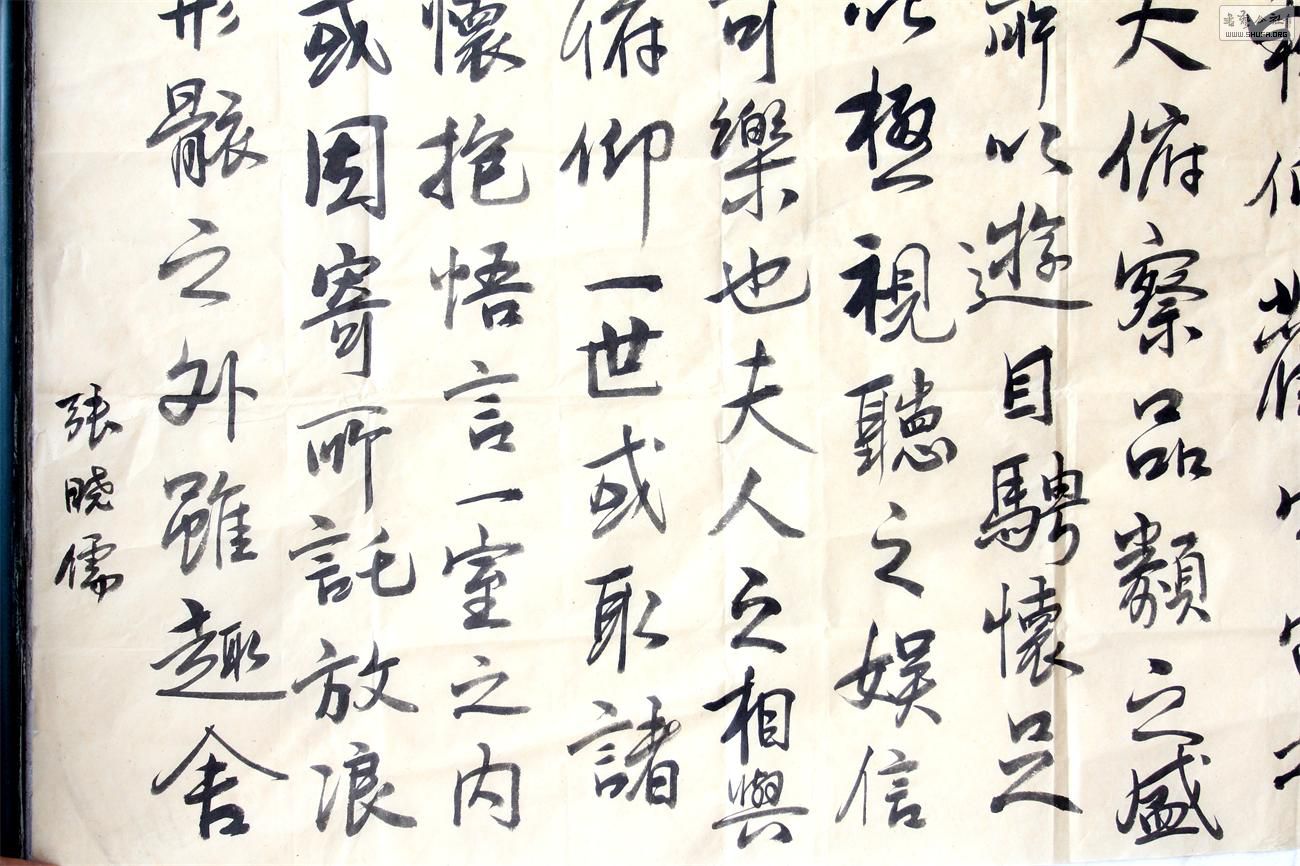 大俯察品類之盛
所以遊目騁懷足
以極視聽之娛信
可樂也夫人之相與
俯仰一世或取諸
懷抱悟言一室之內
或因寄所託放浪
形骸之外雖趣舍
張曉儒
WWW.SHUFA.ORG